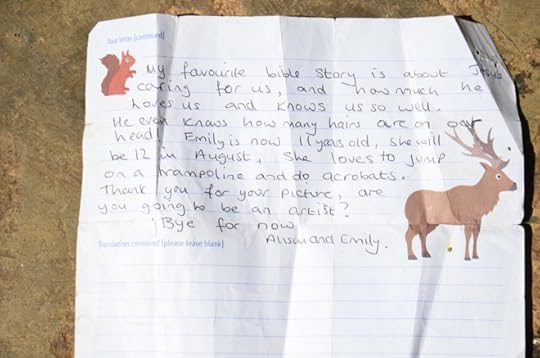 Your letter (continued)
My favourite bible story is about Jesus
caring for us, and how much he
loves us and knows us so well.
He even knows how many hairs are on our
head! Emily is now 11 years old, she will
be 12 in August, she loves to jump
on a trampoline and do acrobats.
Thank you for your picture, are
you going to be an artist?
Bye for now
Alison and Emily.
Translation continued (please leave blank)